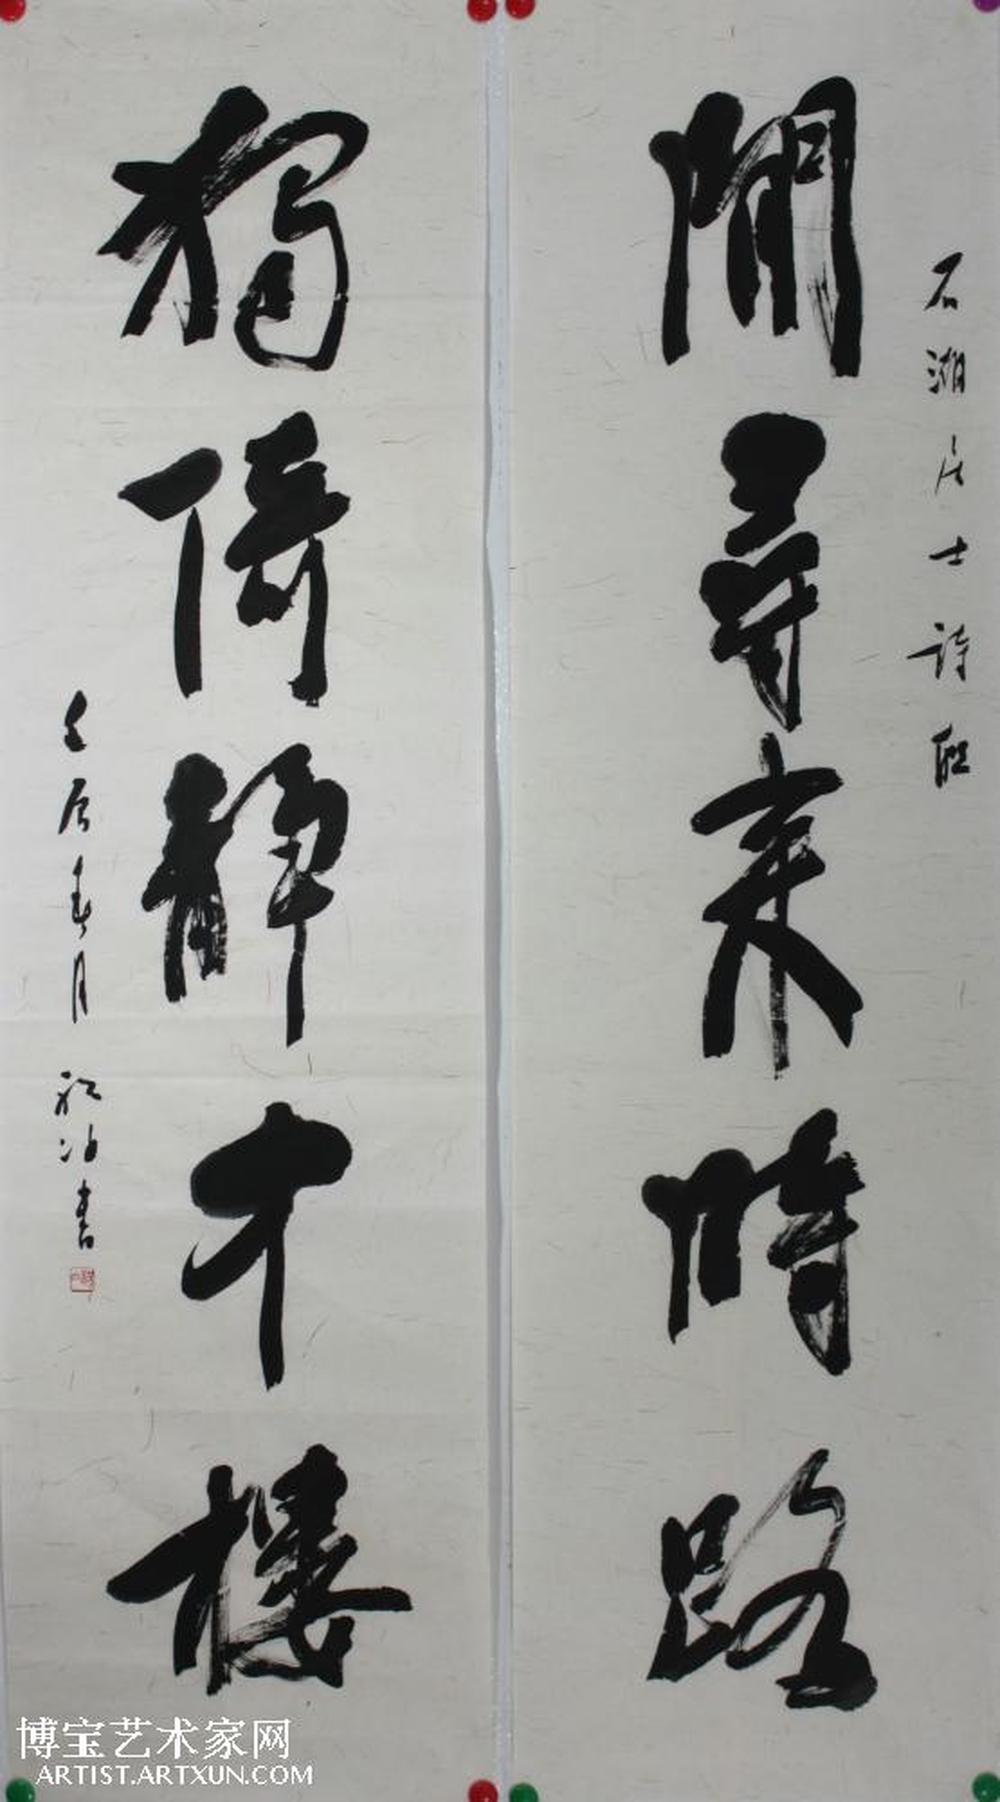 石湖居士詩联
閒尋来時路
獨倚静才楼
壬辰春月 冰書
博宝艺术家网
ARTIST.ARTXUN.COM